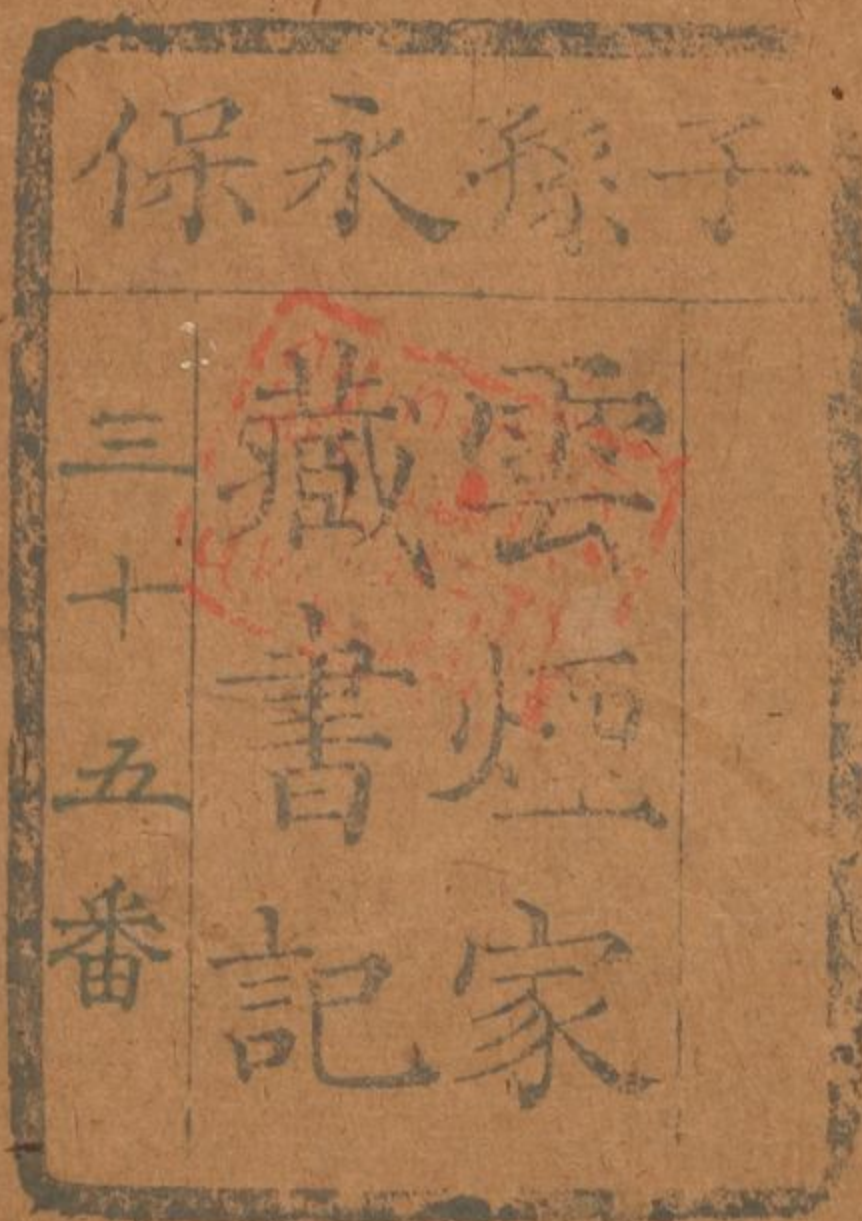 子孫永保
雲煙家
藏書記
三十五番